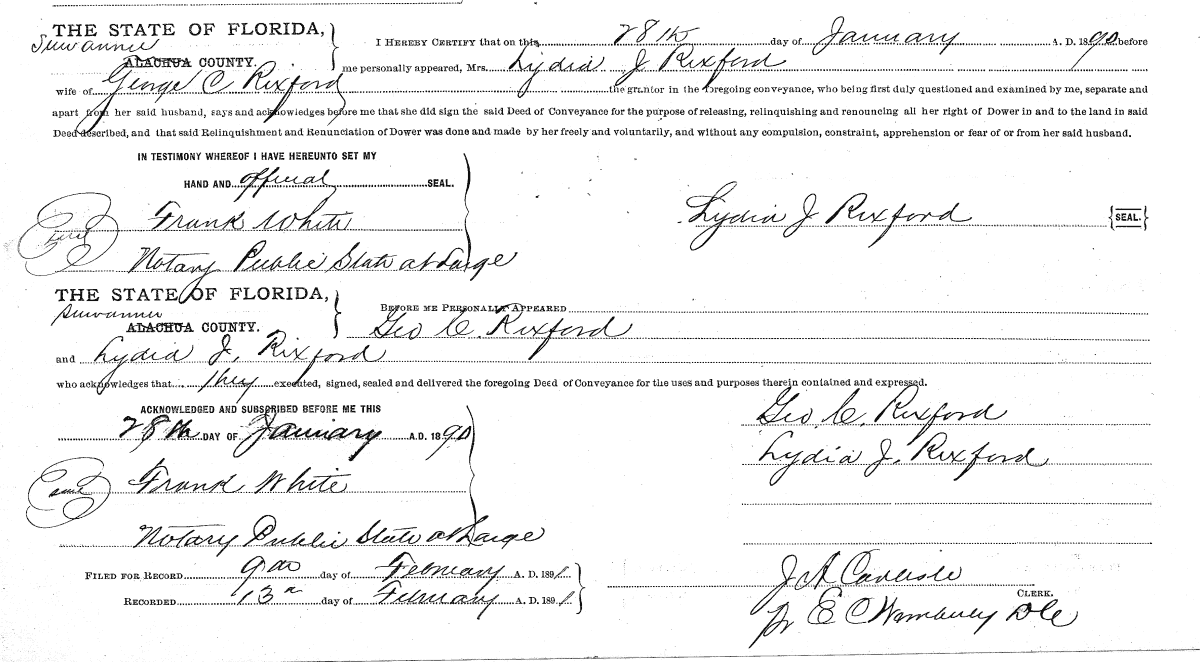 THE STATE OF FLORIDA,
Suwannee
ALACHUA COUNTY.
I HEREBY CERTIFY that on this 28th day of January A. D. 1890 before
me personally appeared, Mrs. Lydia J Rixford
wife of George C Rixford the grantor in the foregoing conveyance, who being first duly questioned and examined by me, separate and
apart from her said husband, says and acknowledges before me that she did sign the said Deed of Conveyance for the purpose of releasing, relinquishing and renouncing all her right of Dower in and to the land in said
Deed described, and that said Relinquishment and Renunciation of Dower was done and made by her freely and voluntarily, and without any compulsion, constraint, apprehension or fear of or from her said husband.
IN TESTIMONY WHEREOF I HAVE HEREUNTO SET MY
HAND AND official SEAL.
Frank White
Lydia J Rixford {SEAL.}
Seal
Notary Public State at Large
THE STATE OF FLORIDA,
Suwannee
ALACHUA COUNTY.
BEFORE ME PERSONALLY APPEARED
Geo C. Rixford
and Lydia J. Rixford
who acknowledges that they executed, signed, sealed and delivered the foregoing Deed of Conveyance for the uses and purposes therein contained and expressed.
ACKNOWLEDGED AND SUBSCRIBED BEFORE ME THIS
28th DAY OF January A.D. 1890
Geo C. Rixford
Lydia J. Rixford
Seal
Frank White
Notary Public State at Large
FILED FOR RECORD 9th day of February A. D. 1891
RECORDED 13th day of February A. D. 1891
J A Carlisle
CLERK.
E C